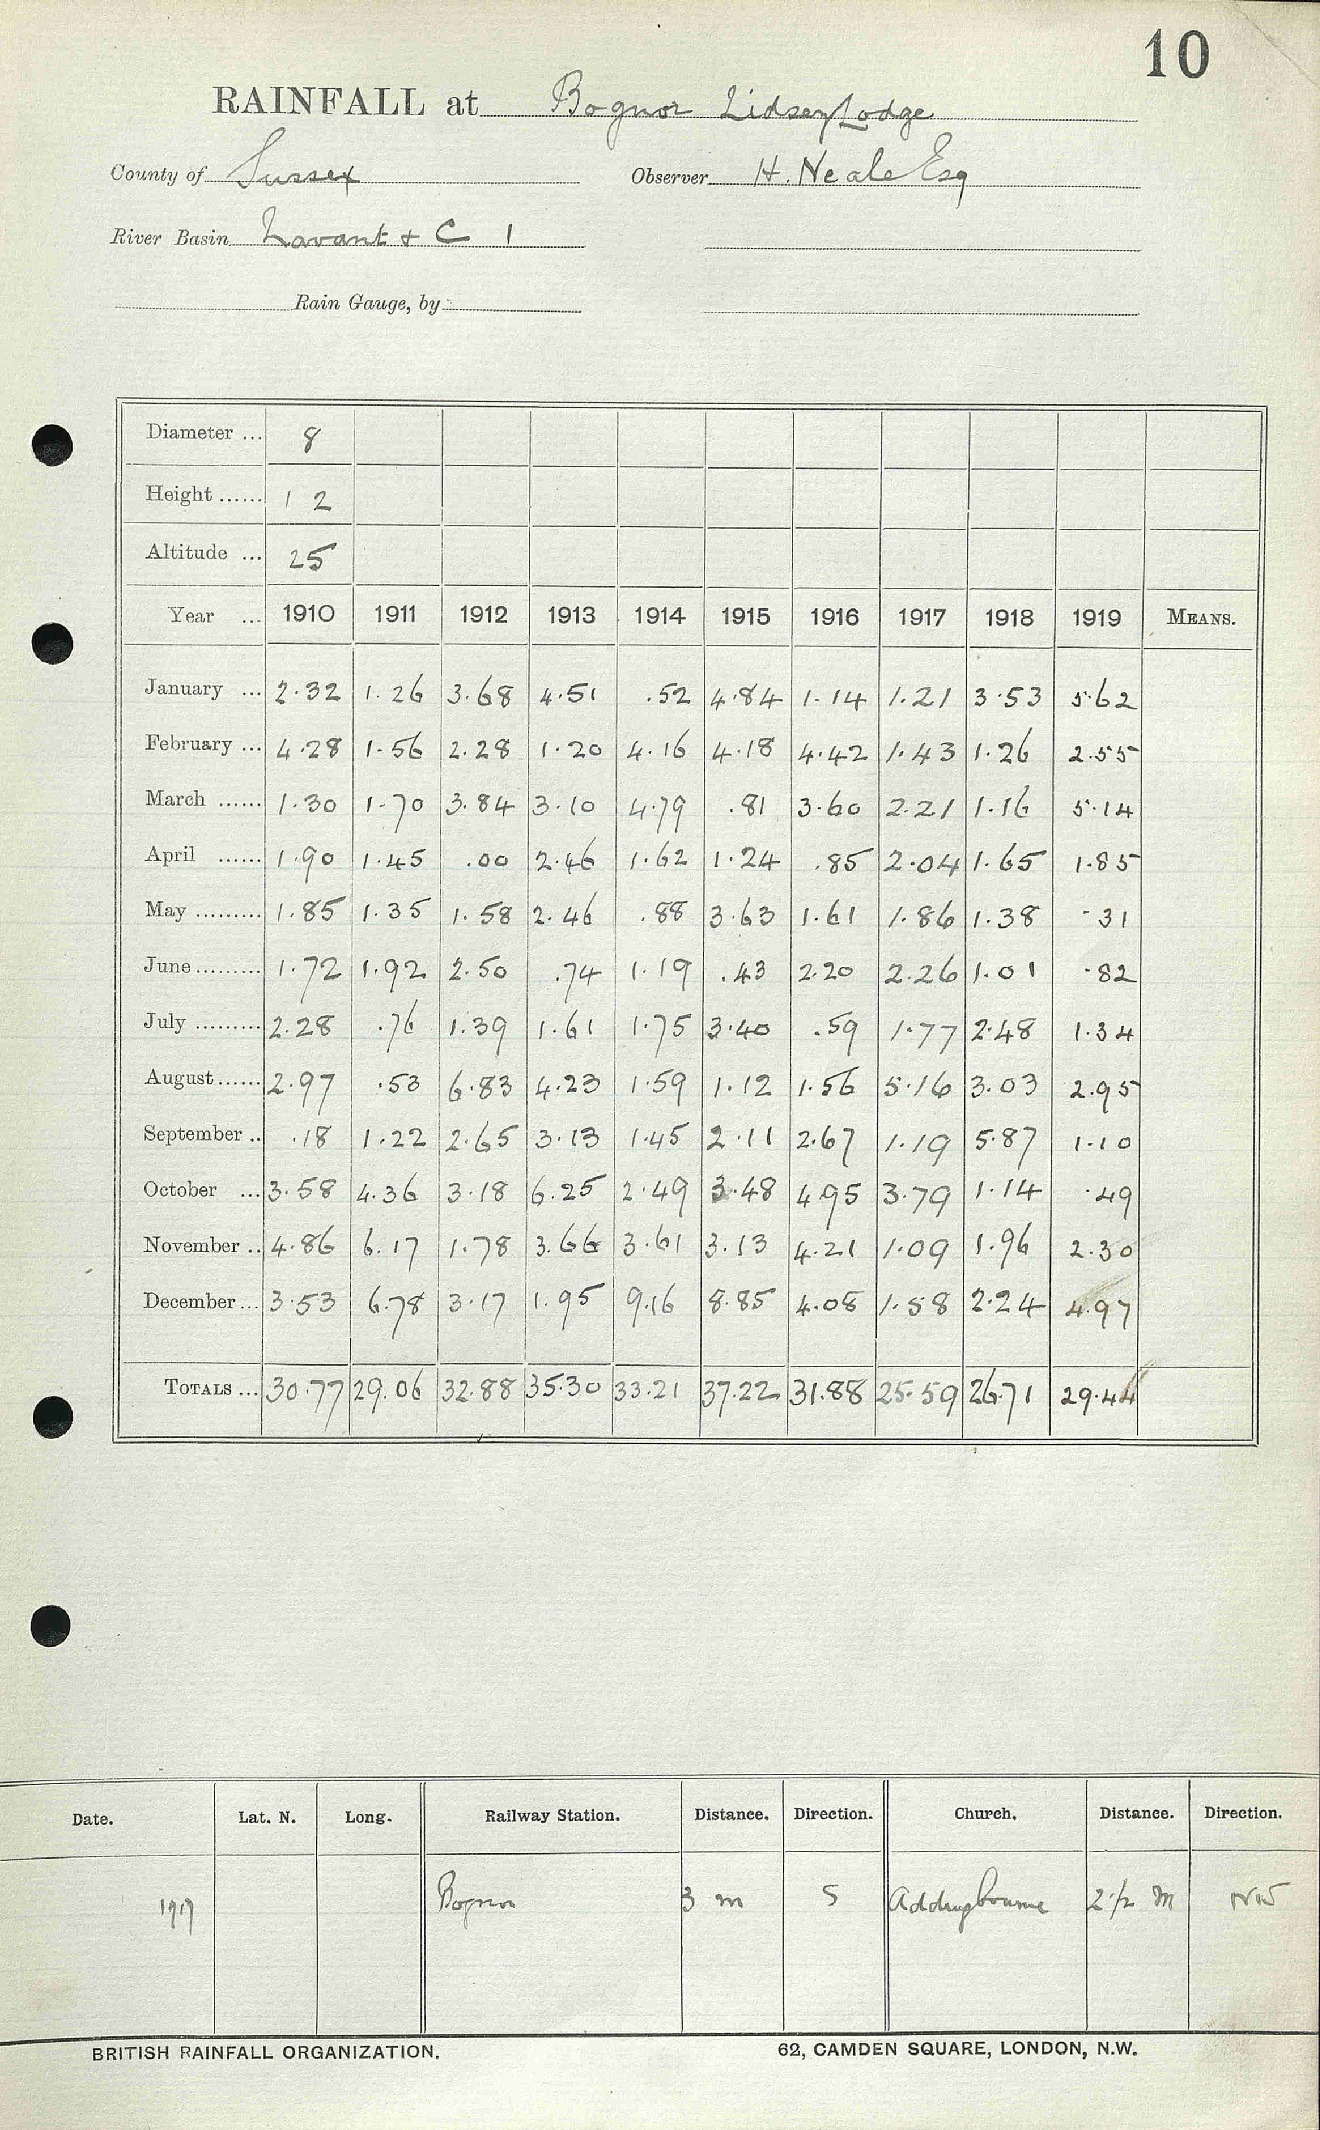 10
RAINFALL at Bognor Lidsey Lodge
County of Sussex Observer H. Neale Esq
River Basin Lavant + C 1
Rain Gauge, by
Diameter ... 8
Height ...... 12
Altitude ... 25
Year ... 1910 1911 1912 1913 1914 1915 1916 1917 1918 1919 MEANS.
January ... 2.32 1.26 3.68 4.51 .52 4.84 1.14 1.21 3.53 5.62
February ... 4.28 1.56 2.28 1.20 4.16 4.18 4.42 1.43 1.26 2.55
March ...... 1.30 1.70 3.84 3.10 4.79 .81 3.60 2.21 1.16 5.14
April ...... 1.90 1.45 .00 2.46 1.62 1.24 .85 2.04 1.65 1.85
May ......... 1.85 1.35 1.58 2.46 .88 3.63 1.61 1.86 1.38 .31
June ......... 1.72 1.92 2.50 .74 1.19 .43 2.20 2.26 1.01 .82
July ......... 2.28 .76 1.39 1.61 1.75 3.40 .59 1.77 2.48 1.34
August ...... 2.97 .53 6.83 4.23 1.59 1.12 1.56 5.16 3.03 2.95
September .. .18 1.22 2.65 3.13 1.45 2.11 2.67 1.19 5.87 1.10
October ... 3.58 4.36 3.18 6.25 2.49 3.48 4.95 3.79 1.14 .49
November .. 4.86 6.17 1.78 3.66 3.61 3.13 4.21 1.09 1.96 2.30
December ... 3.53 6.78 3.17 1.95 9.16 8.85 4.08 1.58 2.24 4.97
TOTALS ... 30.77 29.06 32.88 35.30 33.21 37.22 31.88 25.59 26.71 29.44
Date. Lat. N. Long. Railway Station. Distance. Direction. Church. Distance. Direction.
1917 Bognor 3 m S Addingbourne 2 1/2 m NW
BRITISH RAINFALL ORGANIZATION. 62, CAMDEN SQUARE, LONDON, N.W.